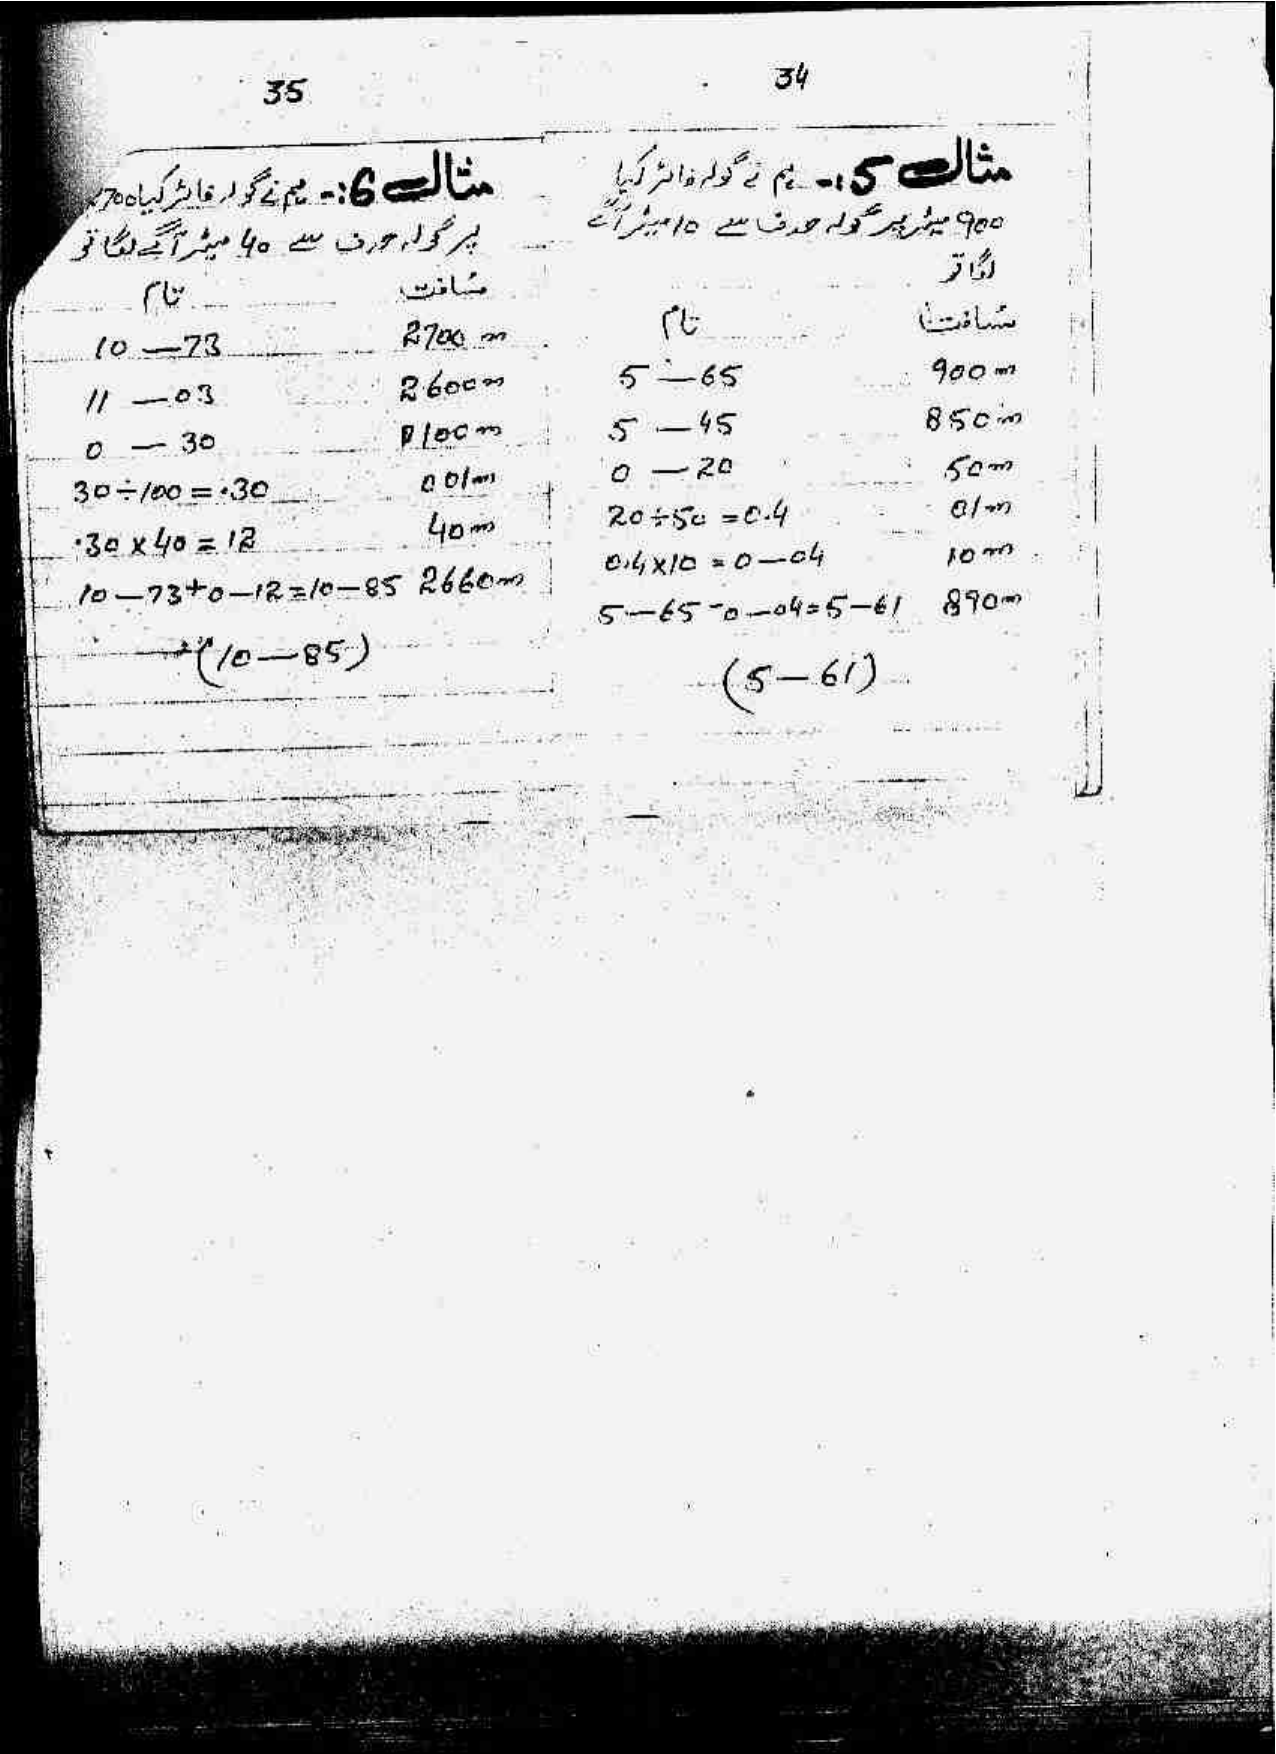 34
مثال 5:- ہم نے گولہ فائر کیا
900 میٹر پر گولہ حدف سے 10 میٹر آگے
لگا تو
مسافت تام
900m 5 — 65
850m 5 — 45
50m 0 — 20
01m 20÷50 = 0.4
10m 0.4×10 = 0—04
890m 5—65-0—04=5—61
(5—61)
35
مثال 6:- ہم نے گولہ فائر کیا 2700
پر گولہ حدف سے 40 میٹر آگے لگا تو
مسافت تام
2700m 10 — 73
2600m 11 — 03
100m 0 — 30
001m 30÷100=.30
40m .30×40=12
2660m 10—73+0—12=10—85
(10—85)